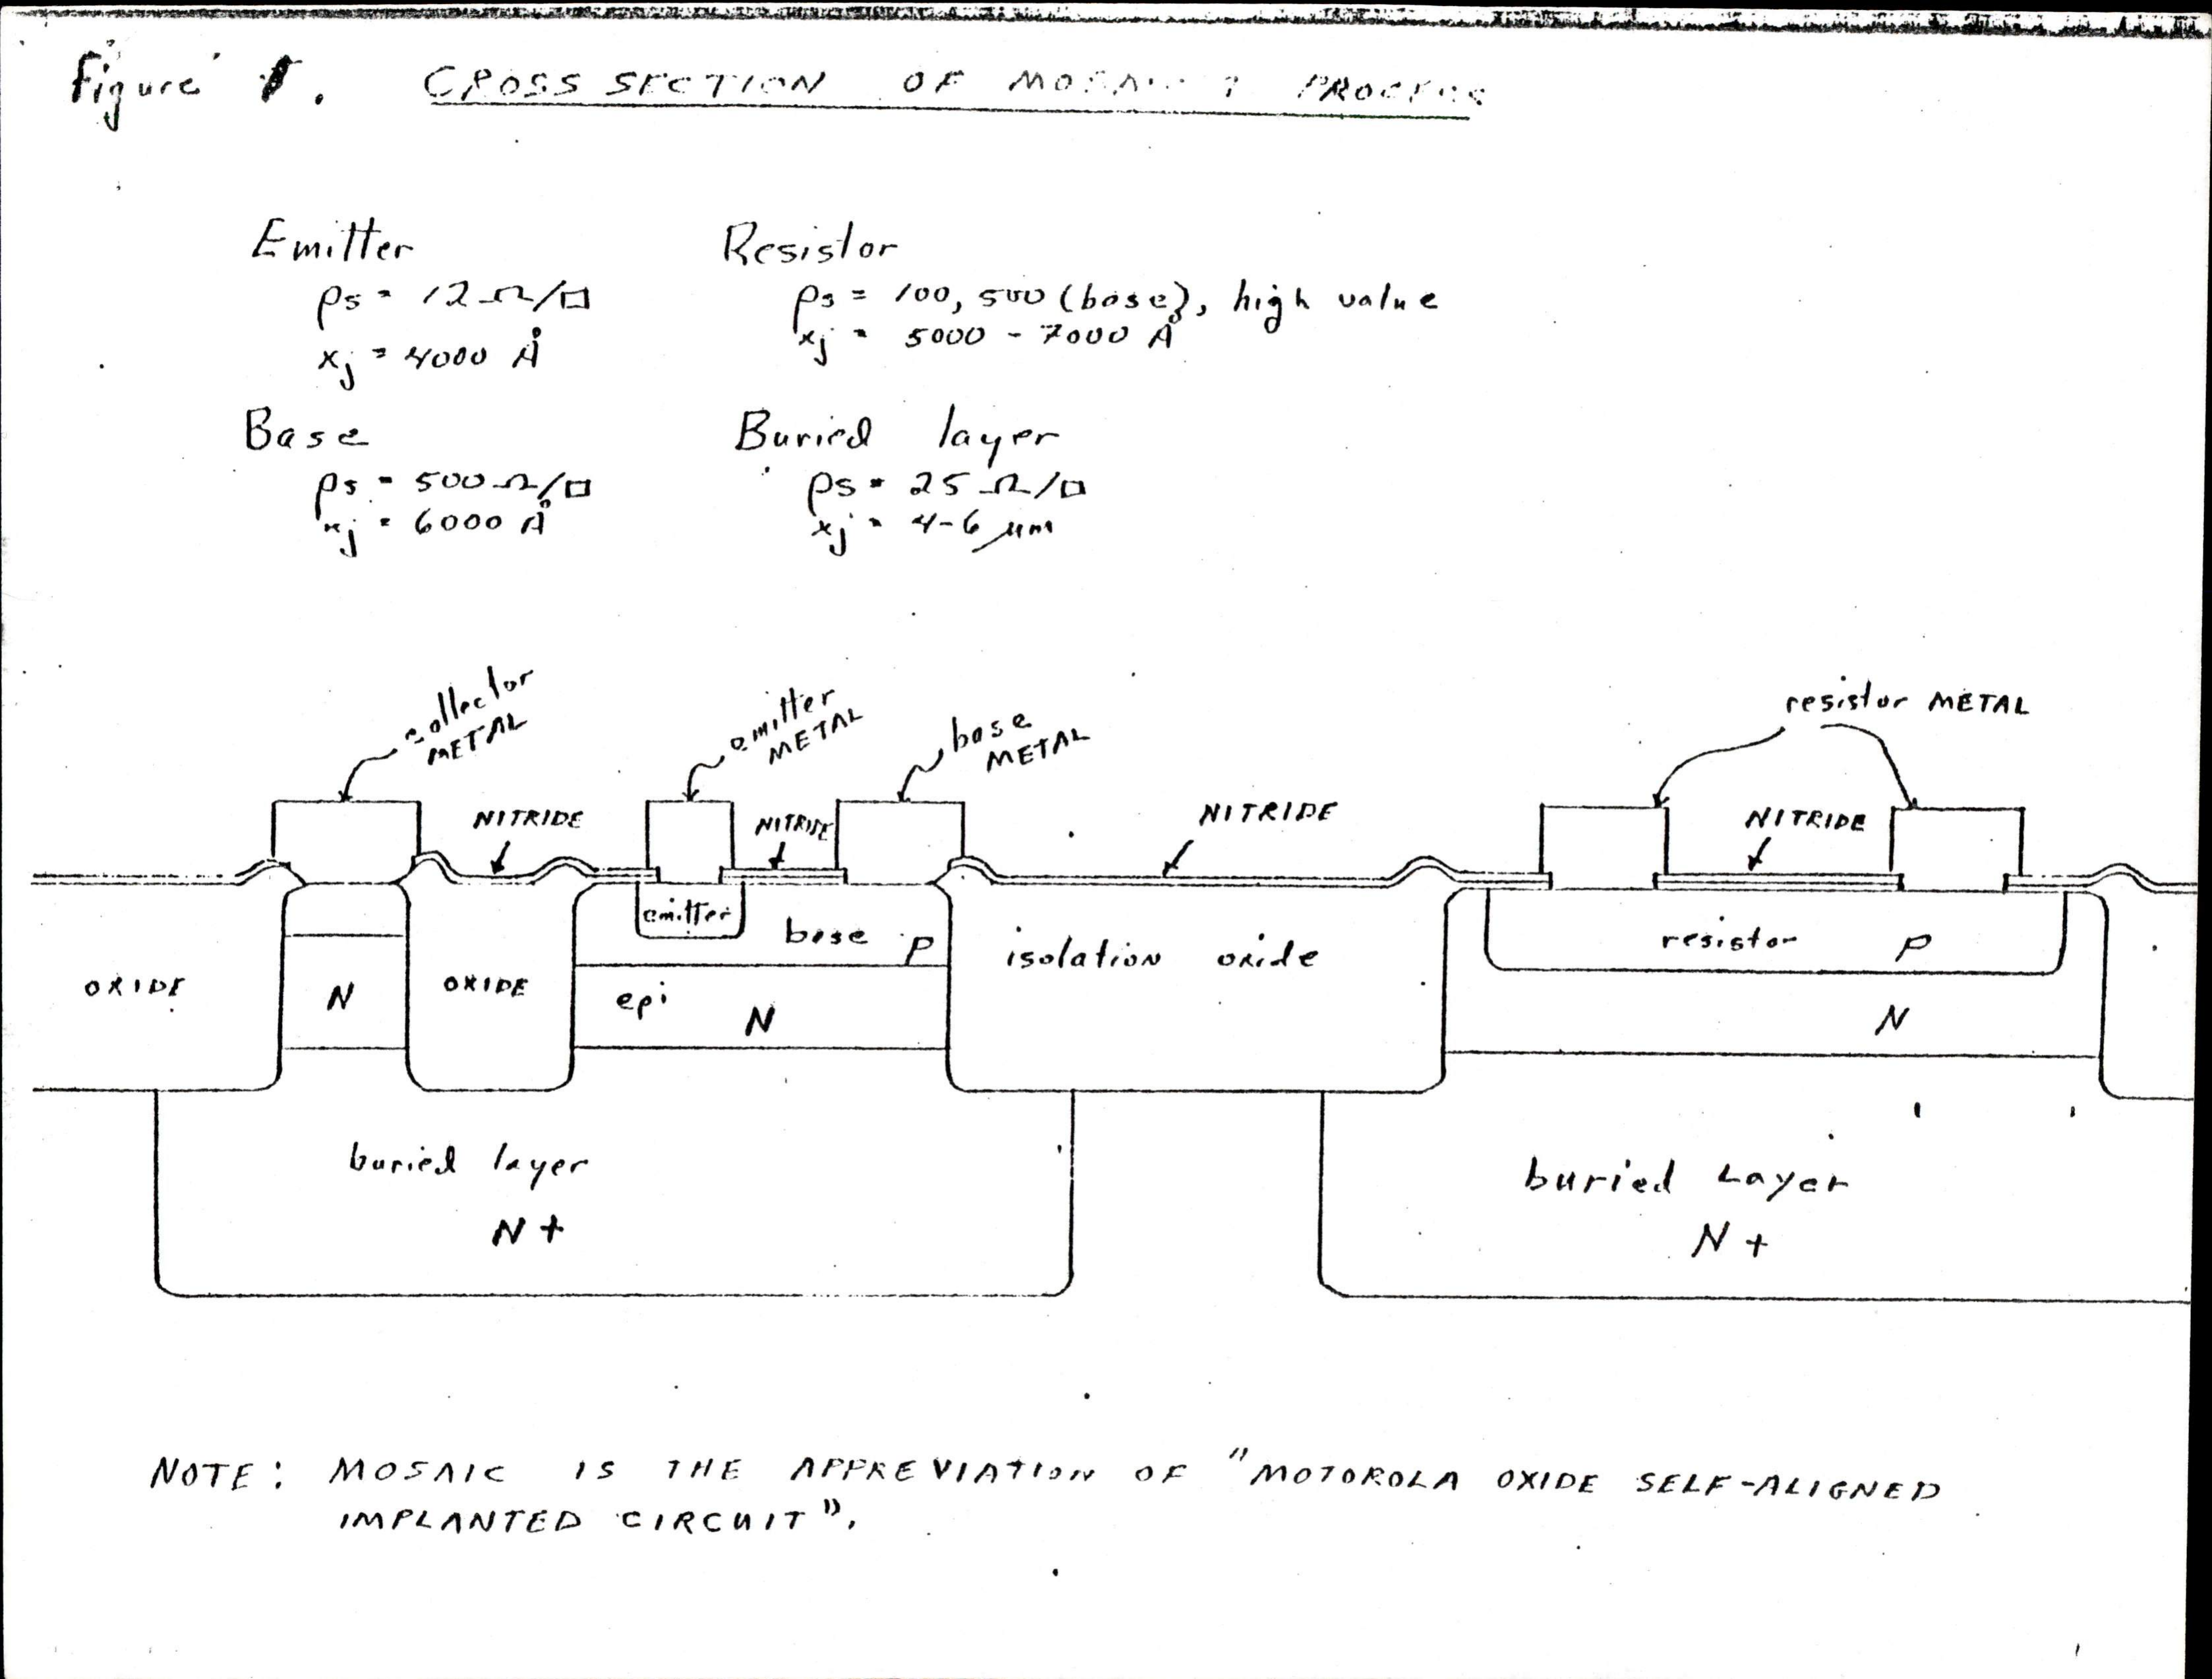 Figure 1. CROSS SECTION OF MOSAIC PROCESS
Emitter
ρs = 12 Ω/□
xj = 4000 Å
Resistor
ρs = 100, 500 (base), high value
xj = 5000 - 7000 Å
Base
ρs = 500 Ω/□
xj = 6000 Å
Buried layer
ρs = 25 Ω/□
xj = 4-6 μm
collector
METAL
emitter
METAL
base
METAL
resistor METAL
NITRIDE
NITRIDE
NITRIDE
NITRIDE
emitter
base P
isolation oxide
resistor P
OXIDE
N
OXIDE
epi
N
N
buried layer
N+
buried Layer
N+
NOTE: MOSAIC IS THE APPREVIATION OF "MOTOROLA OXIDE SELF-ALIGNED
IMPLANTED CIRCUIT".